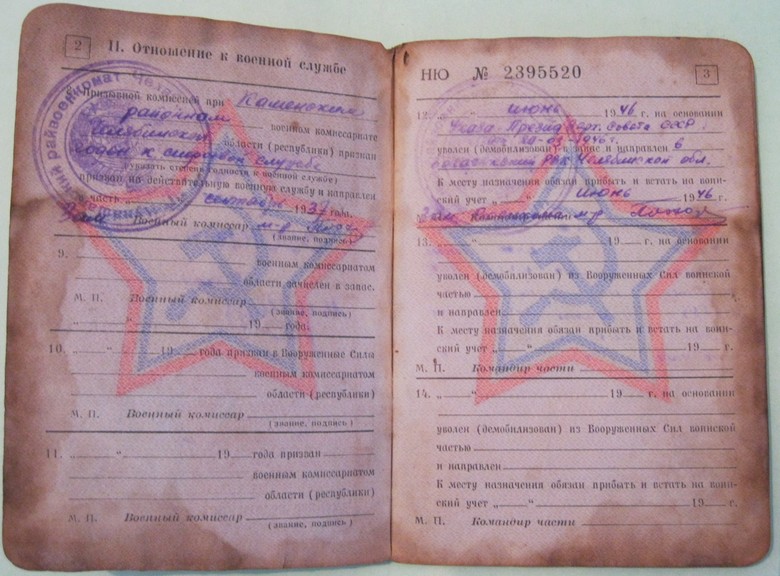 2
II. Отношение к военной службе
Призывной комиссией при Каменском
районном военном комиссариате
Челябинской области (республики) призван
годен к строевой службе
(указать степень годности к военной службе)
призван на действительную военную службу и направлен
часть сентября 1937 года.
Зам Военный комиссар м-р
(звание, подпись)
9.
военным комиссариатом
области зачислен в запас.
М. П. Военный комиссар
(звание, подпись)
„ “ 19 года.
10. „ “ 19 года призван в Вооруженные Силы
военным комиссариатом
области (республики)
М. П. Военный комиссар
(звание, подпись)
11. „ “ 19 года призван
военным комиссариатом
области (республики)
М. П. Военный комиссар
(звание, подпись)
НЮ № 2395520
3
12. „ “ июнь 1946 г. на основании
Указа Презид. Верх. Совета СССР
от 20-03-1946 г.
уволен (демобилизован) в запас и направлен в
РВК Челябинской обл.
К месту назначения обязан прибыть и встать на воин-
ский учет „ “ июнь 1946 г.
Зам м-р
13. „ “ 19 г. на основании
уволен (демобилизован) из Вооруженных Сил воинской
частью
и направлен
К месту назначения обязан прибыть и встать на воин-
ский учет „ “ 19 г.
М. П. Командир части
14. „ “ 19 г. на основании
уволен (демобилизован) из Вооруженных Сил воинской
частью
и направлен
К месту назначения обязан прибыть и встать на воин-
ский учет „ “ 19 г.
М. П. Командир части